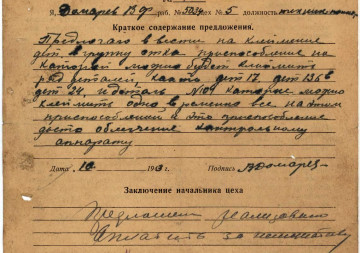 Я, Домарев В.Ф. раб. № 5034 цех № 5 должность
Краткое содержание предложения.
Предлагаю ввести на клеймение
дет. в пункту отка приспособление на
каторой можно будет клеймить
ряд деталей, как то дет 17. дет 136 в
дет 24. и деталь № 109 которые можно
клеймить одно временно все на этим
приспособлении и эта приспособление
даста облегчение контрольному
аппарату
Дата 10 193 г. Подпись Домарев
Заключение начальника цеха
Предложение реализовано
Оплатить за инициативу